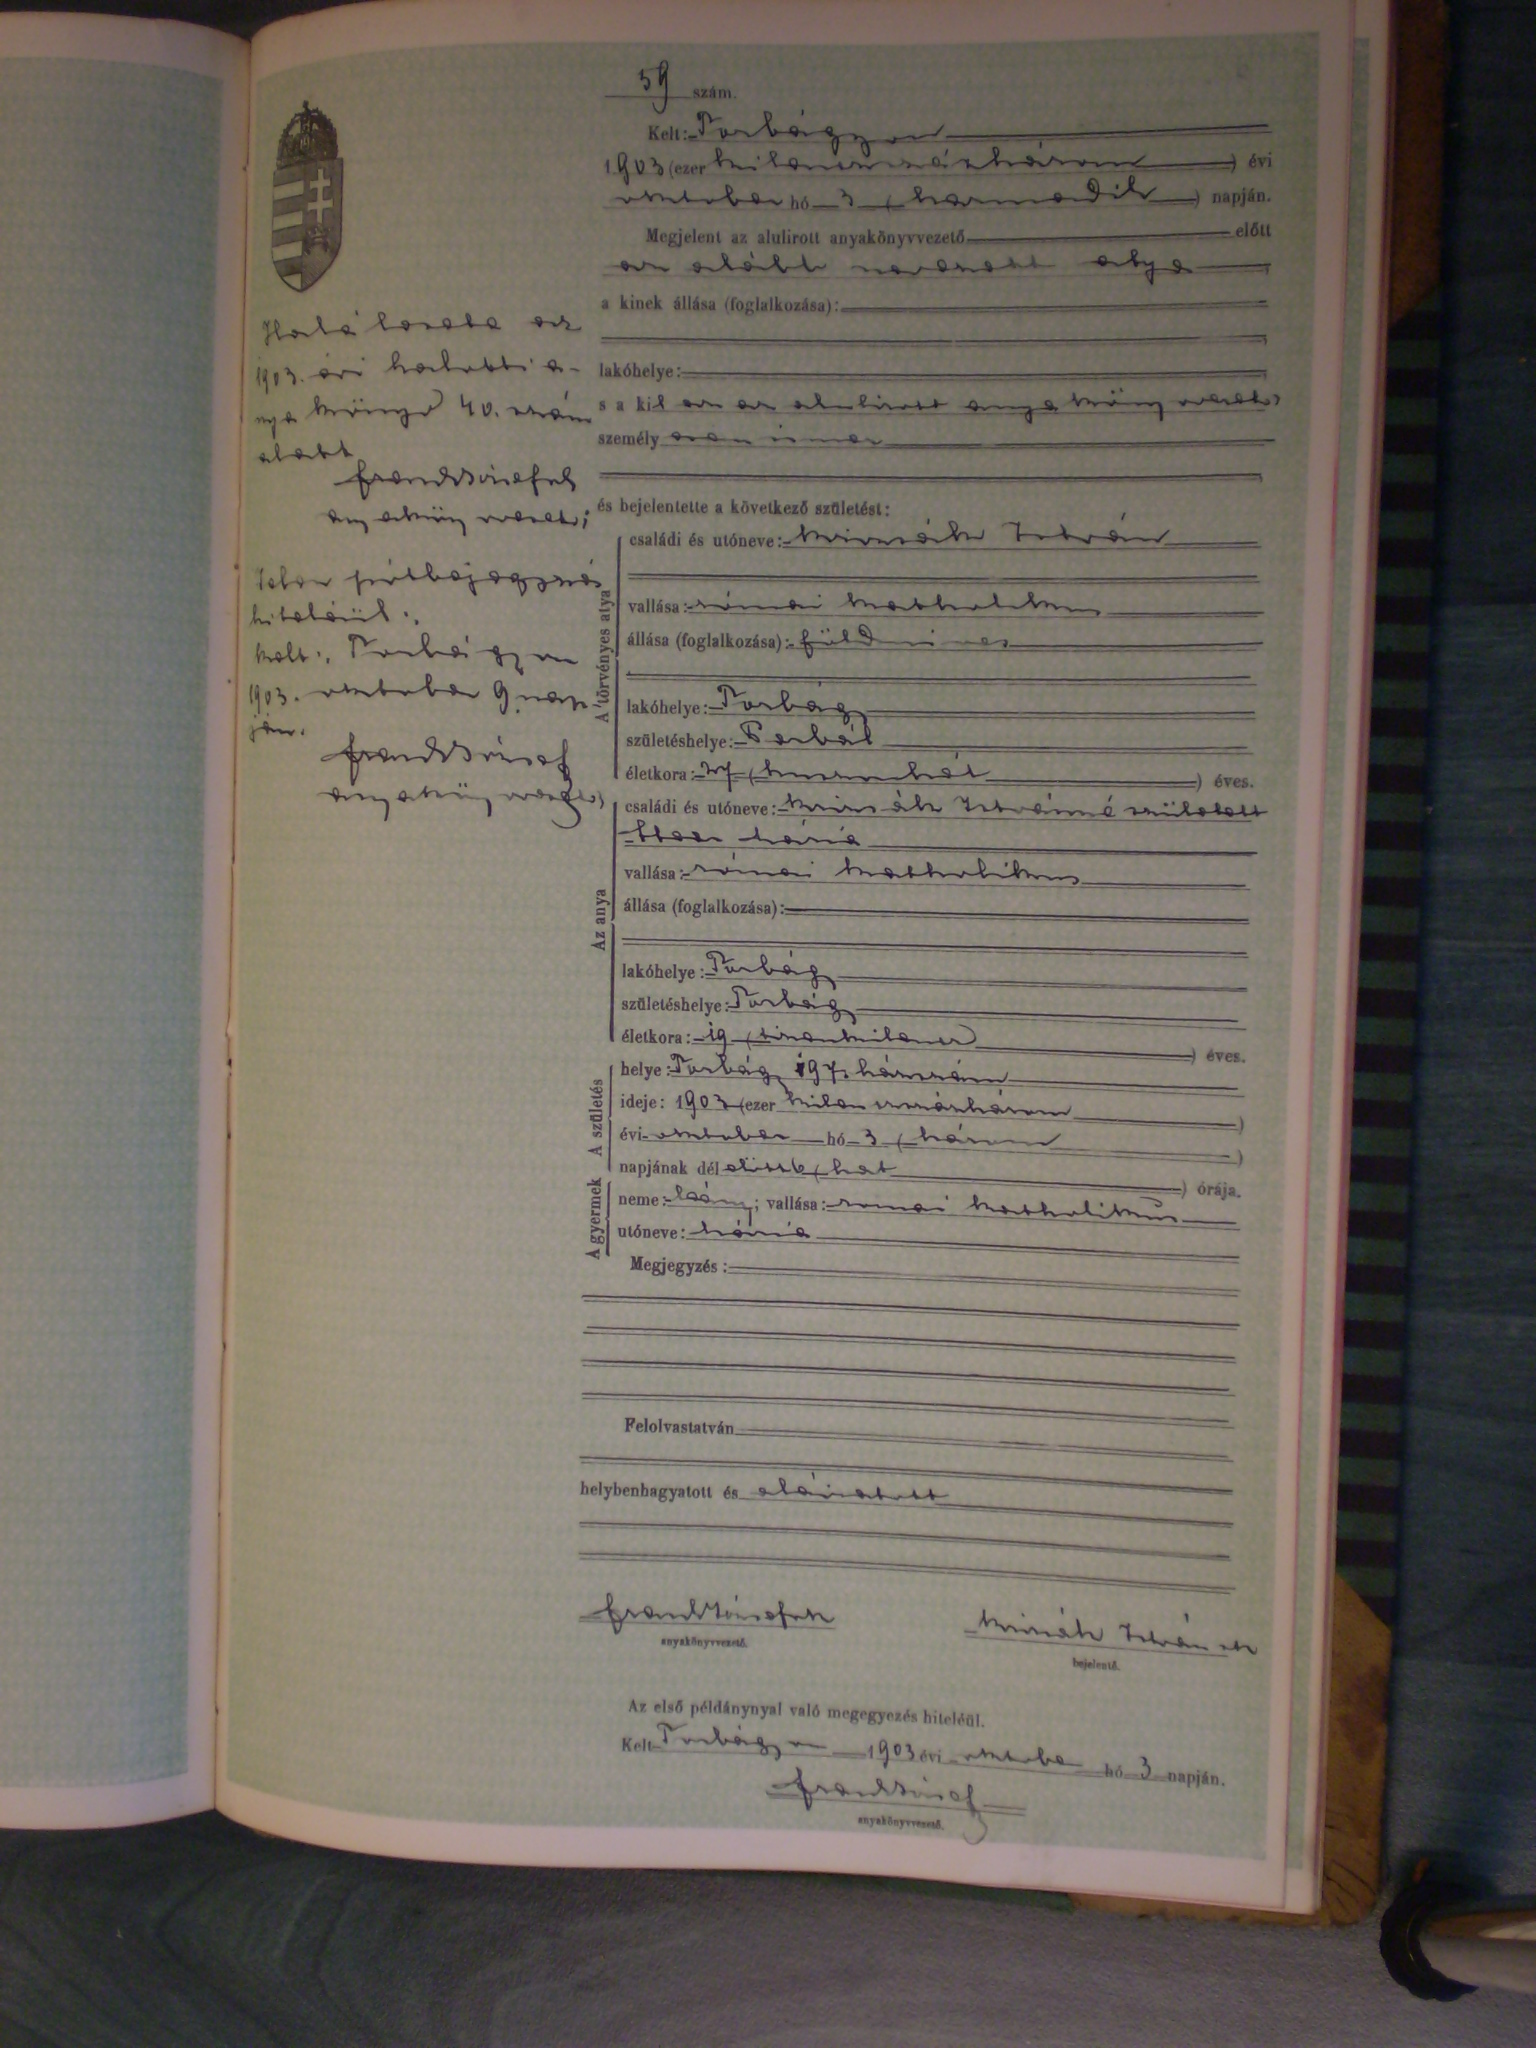 59 szám.
Kelt: Torbágyon
1903 (ezer kilenczszázhárom) évi
oktober hó 3 (harmadik) napján.
Megjelent az alulirott anyakönyvvezető előtt
az alább nevezett atya
a kinek állása (foglalkozása):
lakóhelye:
s a kit az alulirott anyakönyvvezető
személy
és bejelentette a következő születést:
A törvényes atya
családi és utóneve: István
vallása: római katholikus
állása (foglalkozása): földmives
lakóhelye: Torbágy
születéshelye: Perbál
életkora: (huszonhét) éves.
Az anya
családi és utóneve: Istvánné született
Mária
vallása: római katholikus
állása (foglalkozása):
lakóhelye: Torbágy
születéshelye: Torbágy
életkora: 19 (tizenkilencz) éves.
A születés
helye: Torbágy 197. házszám
ideje: 1903 (ezer kilenczszázhárom)
évi oktober hó 3 (három)
napjának dél előtt 6 (hat) órája.
A gyermek
neme: leány; vallása: romai katholikus
utóneve: Mária
Megjegyzés:
Felolvastatván
helybenhagyatott és aláiratott
anyakönyvvezető.
István sk
bejelentő.
Az első példánynyal való megegyezés hiteléül.
Kelt Torbágyon 1903 évi oktober hó 3 napján.
anyakönyvvezető.
Halálesete az
1903. évi halotti a-
nyakönyv 40. szám
alatt
anyakönyvvezető
Jelen pótbejegyzés
hiteléül.
kelt: Torbágyon
1903. oktober 9 nap-
ján.
anyakönyvvezető